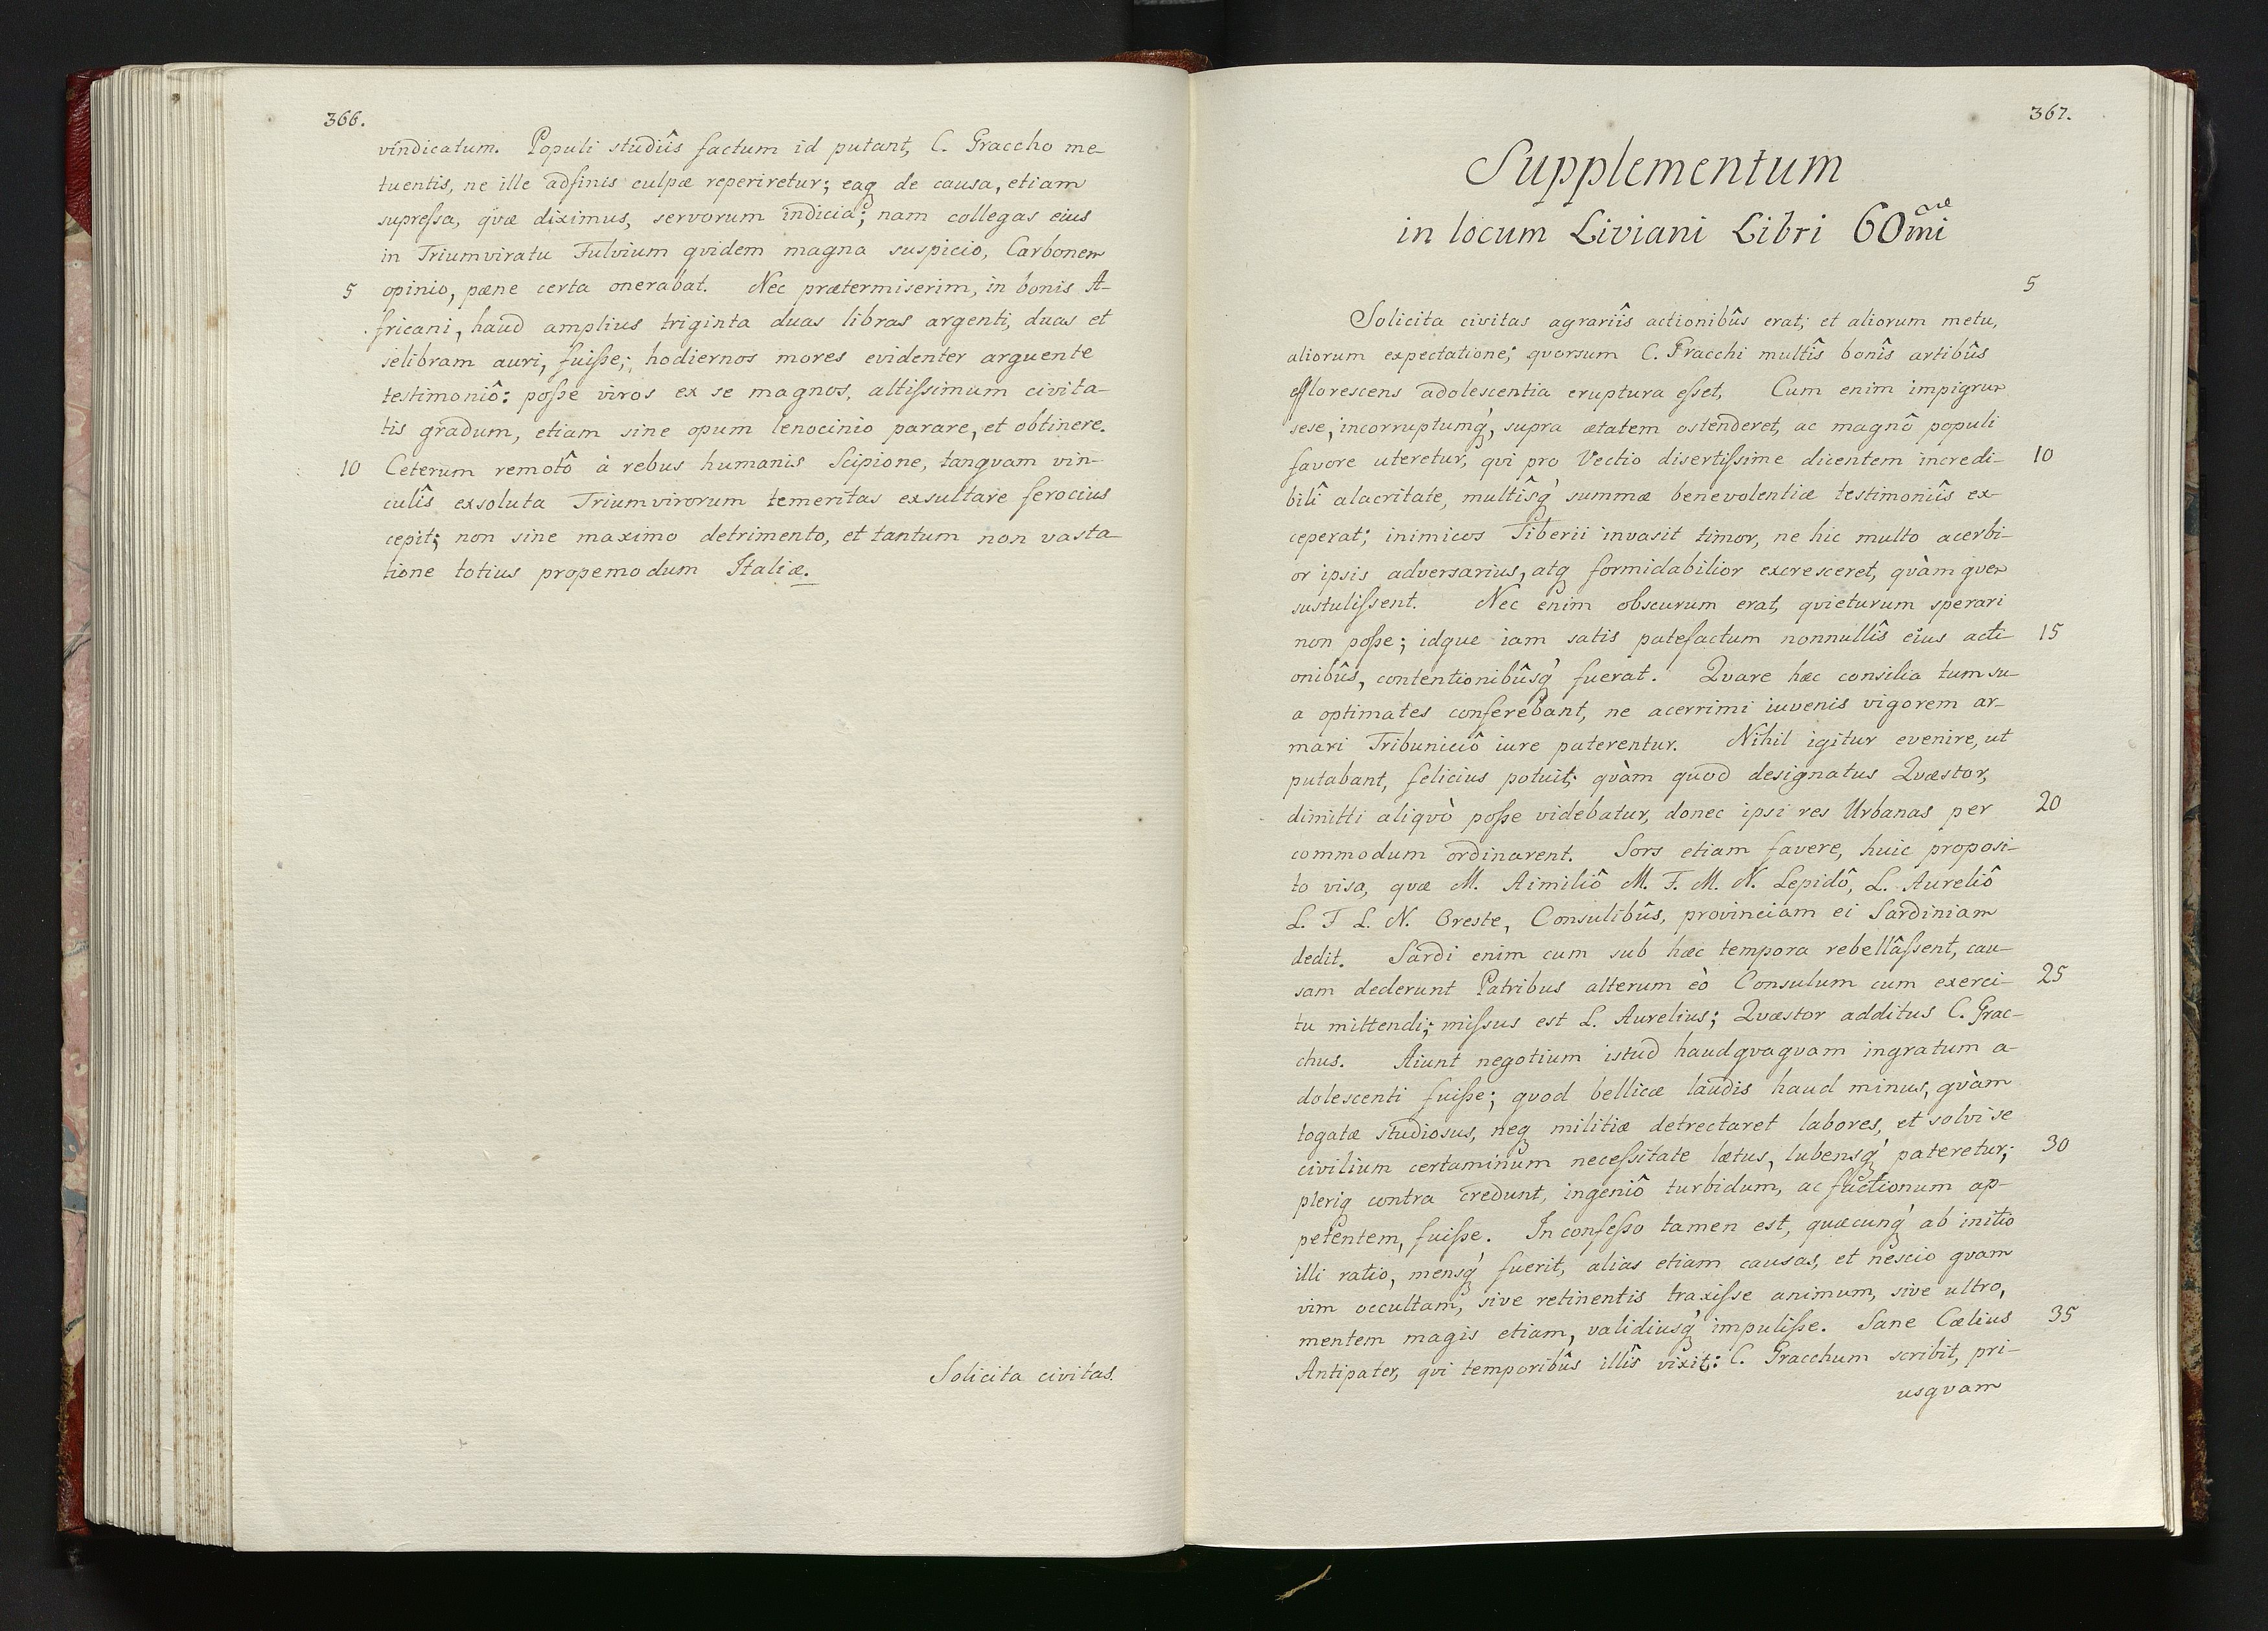 366.
vindicatum. Populi studiîs factum id putant, C. Graccho me-
tuentis, ne ille adfinis culpæ reperiretur; eaq de causa, etiam
supreſsa, qvæ diximus, servorum indicia; nam collegas eius
in Triumviratu Fulvium qvidem magna suspicio, Carbonem
5 opinio, pæne certa onerabat. Nec prætermiserim, in bonis A-
fricani, haud amplius triginta duas libras argenti, duas et
selibram auri, fuiſse; hodiernos mores evidenter arguente
testimoniô: poſse viros ex se magnos, altiſsimum civita-
tis gradum, etiam sine opum lenocinio parare, et obtinere.
10 Ceterum remotô à rebus humanis Scipione, tanqvam vin-
culîs exsoluta Triumvirorum temeritas exsultare ferocius
cepit; non sine maximo detrimento, et tantum non vasta-
tione totius propemodum Italiæ.
Solicita civitas.
367.
Supplementum
in locum Liviani Libri 60mi
5
Solicita civitas agrariîs actionibûs erat; et aliorum metu,
aliorum expectatione; qvorsum C. Gracchi multîs bonîs artibûs
efflorescens adolescentia eruptura eſset. Cum enim impigrum
sese, incorruptumq́, supra ætatem ostenderet, ac magnô populi
favore uteretur, qvi pro Vectio disertiſsime dicentem incredi- 10
bilî alacritate, multîsq́ summæ benevolentiæ testimoniîs ex-
ceperat; inimicos Tiberii invasit timor, ne hic multo acerbi-
or ipsis adversarius, atq formidabilior excresceret, qvàm qvem
sustuliſsent. Nec enim obscurum erat, qvieturum sperari
non poſse; idque iam satis patefactum nonnullîs eius acti- 15
onibûs, contentionibûsq́ fuerat. Qvare hæc consilia tum su-
a optimates conferebant, ne acerrimi iuvenis vigorem ar-
mari Tribuniciô iure paterentur. Nihil igitur evenire, ut
putabant, felicius potuit; qvàm quod designatus Qvæstor,
dimitti aliqvò poſse videbatur, donec ipsi res Urbanas per 20
commodum ordinarent. Sors etiam favere, huic proposi-
to visa, qvæ M. Aimiliô M. F. M. N. Lepidô, L. Aureliô
L. F L. N. Oreste, Consulibûs, provinciam ei Sardiniam
dedit. Sardi enim cum sub hæc tempora rebellâſsent, cau-
sam dederunt Patribus alterum eò Consulum cum exerci- 25
tu mittendi; miſsus est L. Aurelius; Qvæstor additus C. Grac-
chus. Aiunt negotium istud haudqvaqvam ingratum a-
dolescenti fuiſse; qvod bellicæ laudis haud minus, qvàm
togatæ studiosus, neq militiæ detrectaret labores, et solvi se
civilium certaminum neceſsitate lætus, lubensq́ pateretur; 30
pleriq contra credunt, ingeniô turbidum, ac factionum ap-
petentem, fuiſse. In confeſso tamen est, quæcunq́ ab initio
illi ratio, mensq́ fuerit, alias etiam causas, et nescio qvam
vim occultam, sive retinentis traxiſse animum, sive ultro,
mentem magis etiam, validiusq́ impuliſse. Sane Cælius 35
Antipater, qvi temporibûs illîs vixit: C. Gracchum scribit, pri-
usqvam